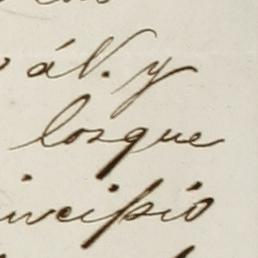 áV. y
losque
incipio